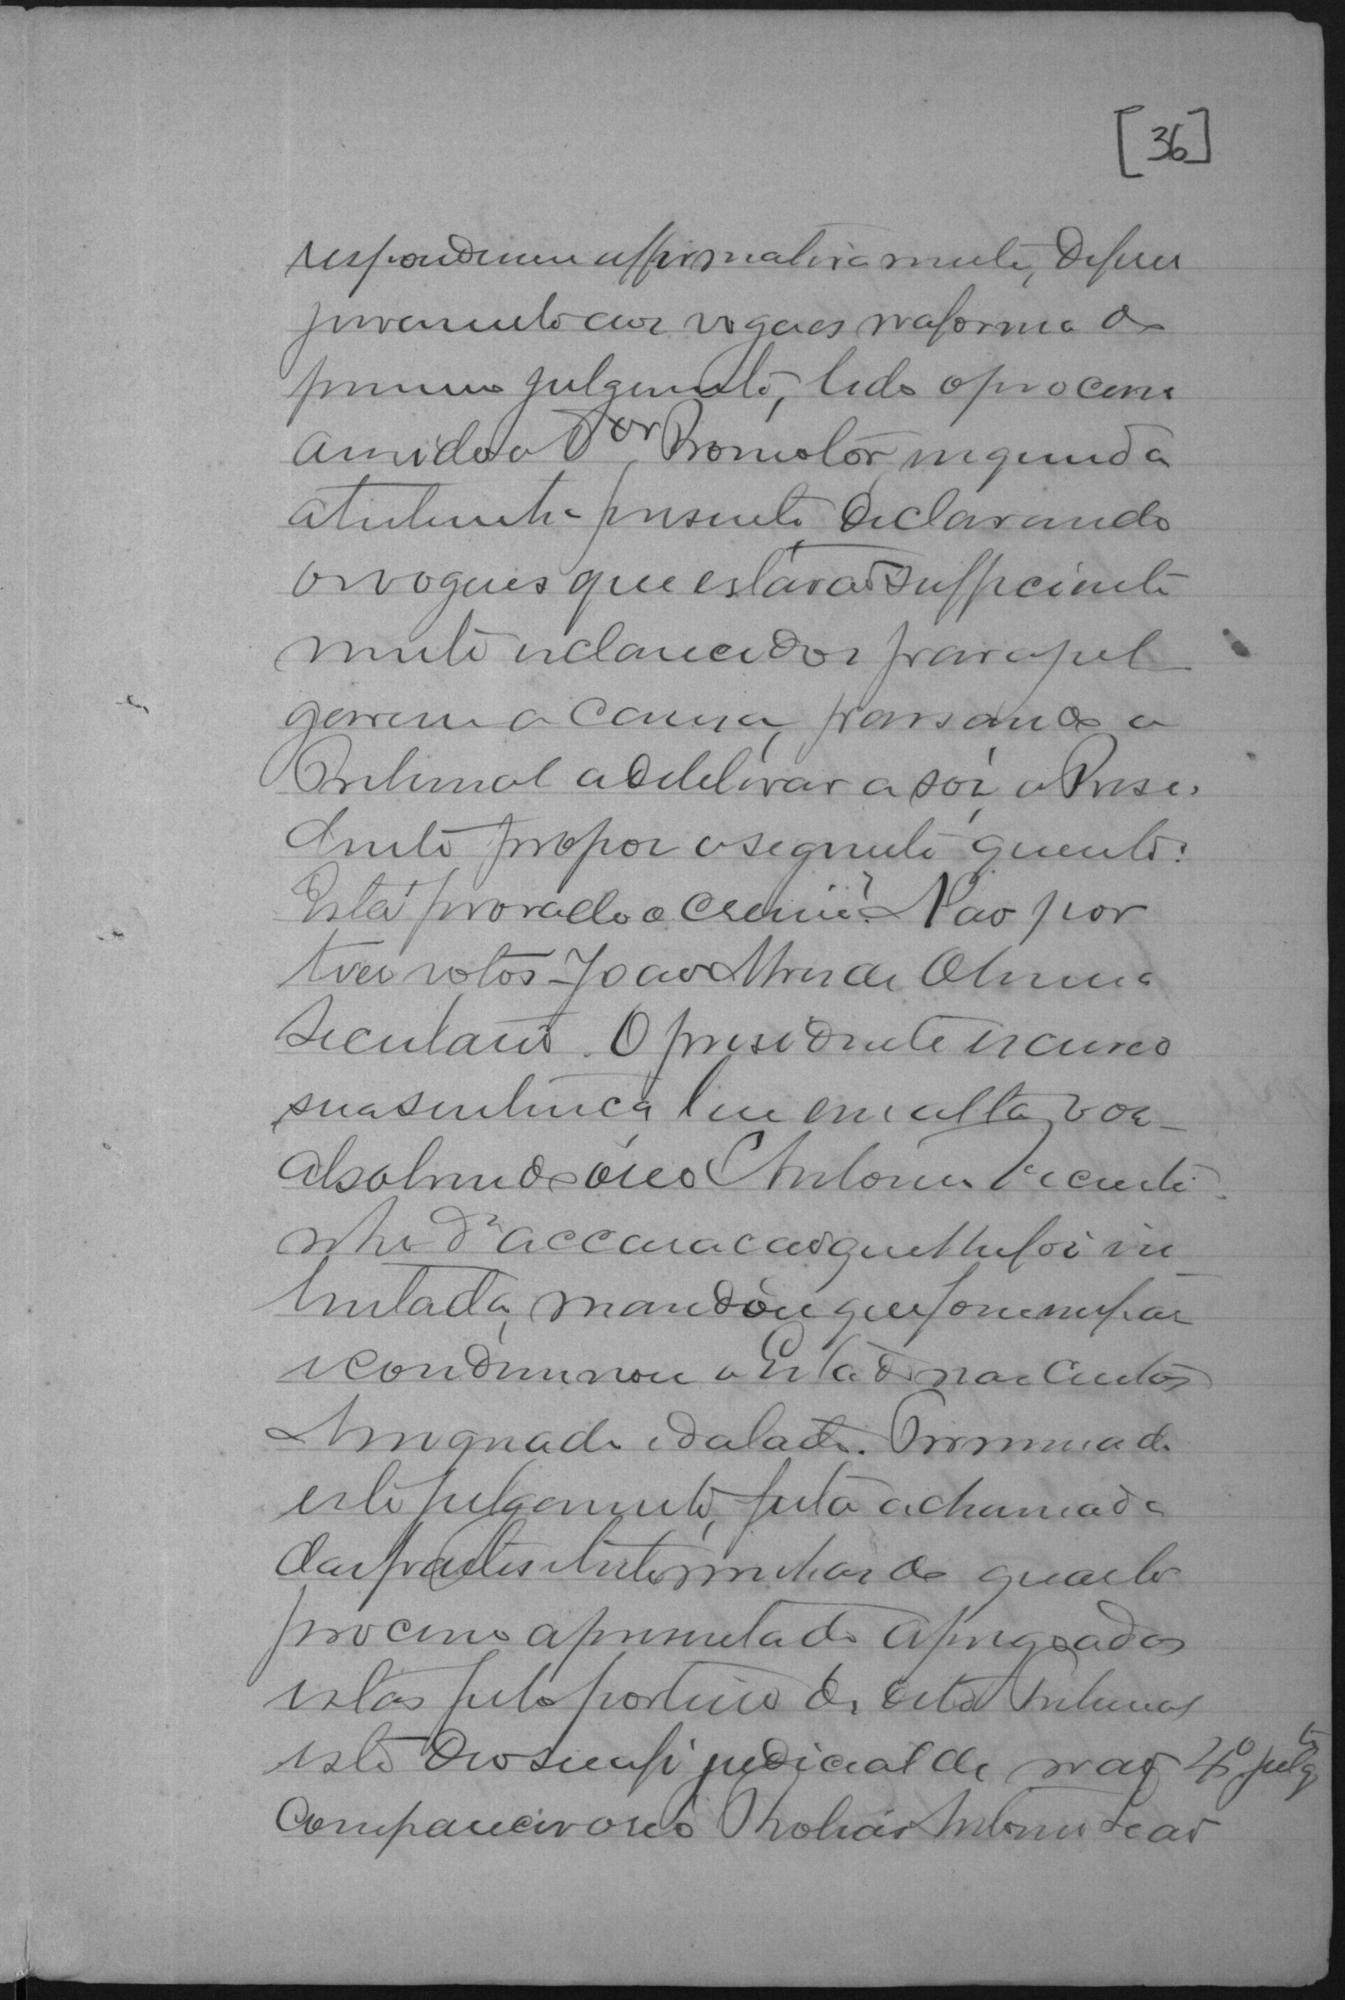 [36]
responderem affirmativamente, deferi
juramento aos vogaes na forma do
primeiro julgamento, lido o processo
ouvido o Dor Promotor, segunda
a testemunha presente, declarando
os vogaes que estavão sufficiente
mente esclarecidos para jul
garem a causa, passando o
Tribunal a deliberar a sós, o Presi
dente propoz o seguinte quesito:
Está provado o crime? Não por
tres votos - João Alves de Oliveira
Secretario. O presidente escreveo
sua sentença leu em alta voz
absolvendo o reo Antonio Vicenti
nho d'accusação que lhe foi in
tentada, mandou que fosse em paz
e condemnou o Estado nas custas
Assignado e datado. Terminado
este julgamento, feita a chamada
das partes e testemunhas do quarto
processo apresentado apregoados
estas pelo porteiro deste Tribunal
este deo sua fé judicial de não 4º julgto
comparecer o reo Thobias Antonio Leao